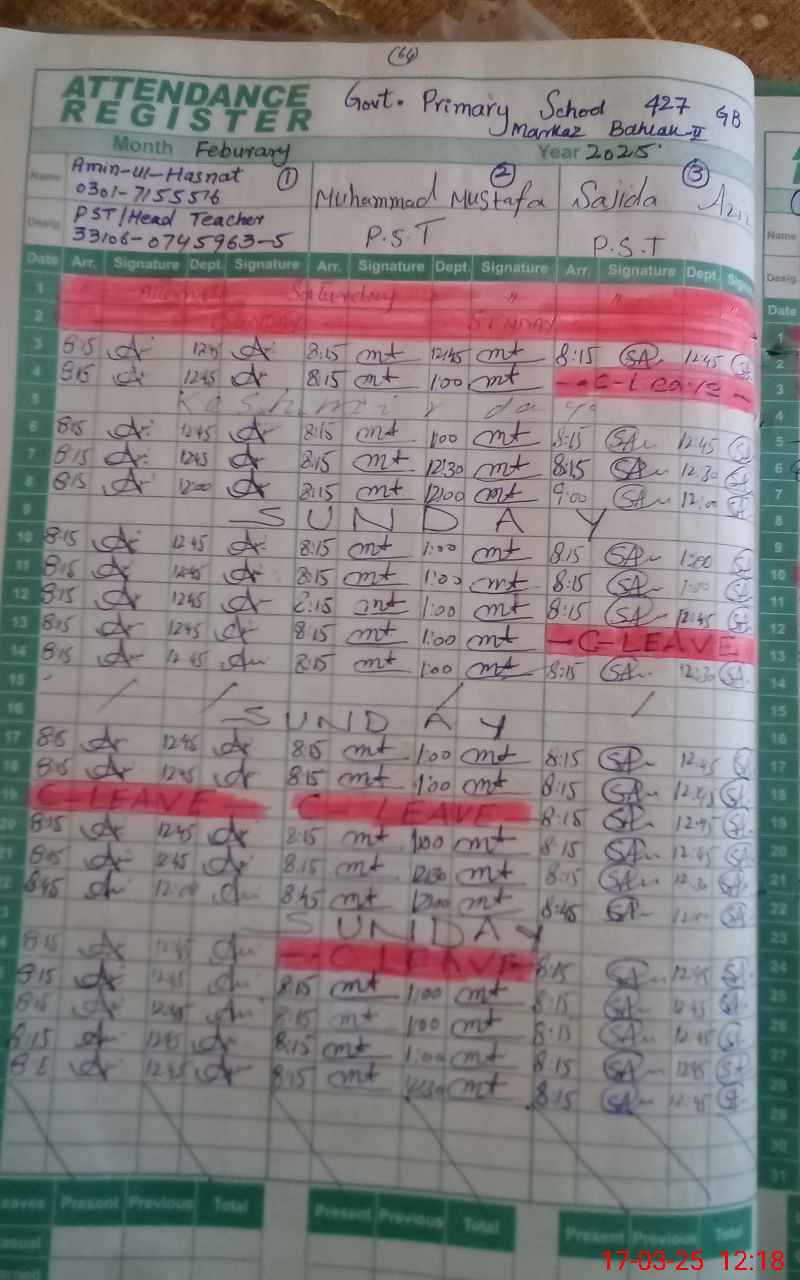 (64)
ATTENDANCE REGISTER
Govt. Primary School 427 GB
Markaz Bahlak-II
Month Feburary Year 2025
Name Amin-ul-Hasnat ① Muhammad Mustafa ② Sajida Aziz ③
0301-7155516
Desig. PST/Head Teacher P.S.T P.S.T
33106-0745963-5
Date Arr. Signature Dept. Signature Arr. Signature Dept. Signature Arr. Signature Dept.
1 Saturday " "
2 SUNDAY SUNDAY
3 8:15 1245 8:15 mt 12:45 mt 8:15 SA 1245
4 8:15 1245 8:15 mt 1:00 mt - C-Leave -
5 Kashmir day
6 8:15 1245 8:15 mt 1:00 mt 8:15 SA 12:45
7 8:15 1245 8:15 mt 12:30 mt 8:15 SA 12:30
8 8:15 12:00 8:15 mt 12:00 mt 9:00 SA 12:00
9 SUNDAY
10 8:15 1245 8:15 mt 1:00 mt 8:15 SA 1:00
11 8:15 1245 8:15 mt 1:00 mt 8:15 SA 1:00
12 8:15 1245 8:15 mt 1:00 mt 8:15 SA 12:45
13 8:15 1245 8:15 mt 1:00 mt - C-LEAVE
14 8:15 1245 8:15 mt 1:00 mt 8:15 SA 12:30
15
16 SUNDAY
17 8:15 1245 8:15 mt 1:00 mt 8:15 SA 12:45
18 8:15 1245 8:15 mt 1:00 mt 8:15 SA 12:45
19 C-LEAVE C-LEAVE 8:15 SA 12:45
20 8:15 1245 8:15 mt 1:00 mt 8:15 SA 12:45
21 8:15 1245 8:15 mt 12:30 mt 8:15 SA 12:30
22 8:45 12:00 8:45 mt 12:00 mt 8:45 SA 12:00
23 SUNDAY
8:15 1245 - C LEAVE 8:15 SA 12:45
8:15 1245 8:15 mt 1:00 mt 8:15 SA 12:45
8:15 1245 8:15 mt 1:00 mt 8:15 SA 12:45
8:15 1245 8:15 mt 1:00 mt 8:15 SA 1245
1245 8:15 mt mt 8:15 SA 12:45
Present Previous Total Present Previous Total Present Previous Total
Name
Desig.
Date
1
2
3
4
5
6
7
8
9
10
11
12
13
14
15
16
17
18
19
20
21
22
23
24
25
26
27
28
29
30
31
17-03-25 12:18